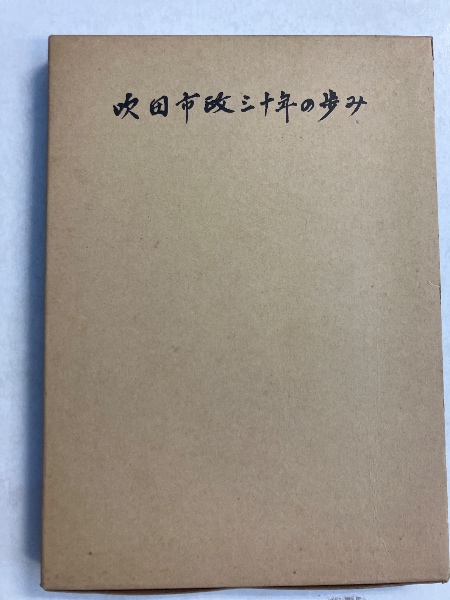 吹田市政三十年の歩み